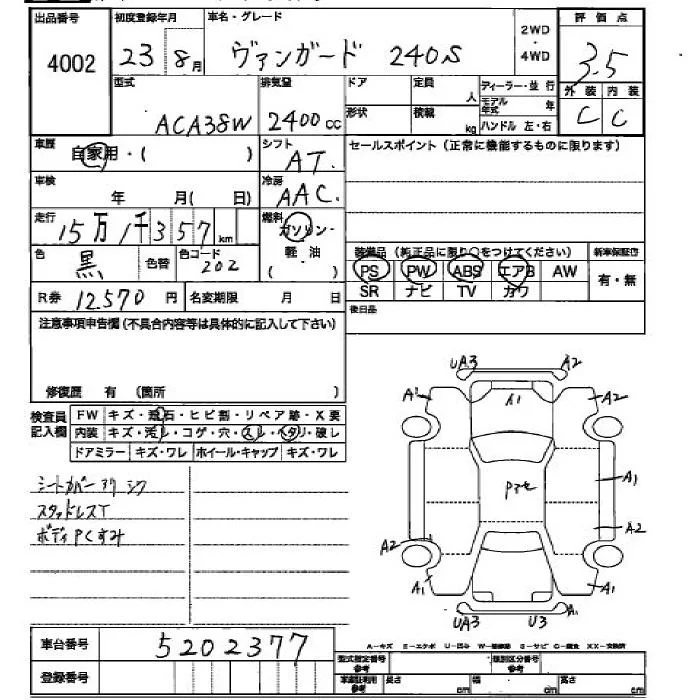 出品番号 初度登録年月 車名・グレード 2WD 評価点
4002 23 8月 ヴァンガード 240S 4WD 3.5
型式 排気量 ドア 定員 人 ディーラー・並行 外装 内装
ACA38W 2400cc 形状 積載 kg モデル年式 年 C C
ハンドル 左・右
車歴 自家用・( ) シフト AT. セールスポイント(正常に機能するものに限ります)
車検 年 月( 日) 冷房 AAC.
走行 15万1千357km 燃料 ガソリン・軽・油( )
色 黒 色替 色コード 202
装備品(純正品に限り○をつけてください) 新車保証書
PS PW ABS エアB AW 有・無
SR ナビ TV カワ
R券 12570円 名変期限 月 日
後日品
注意事項申告欄(不具合内容等は具体的に記入して下さい)
修復歴 有 (箇所 )
検査員記入欄 FW キズ・飛石・ヒビ割・リペア跡・X要
内装 キズ・汚レ・コゲ・穴・スレ・ヘタリ・破レ
ドアミラー キズ・ワレ ホイール・キャップ キズ・ワレ
シートカバー
スタッドレスT
ボディPCすみ
UA3 A2
A1 A1 A2
A1
A2 A2
A1 A1
UA3 U3 A1
A-キズ E-エクボ U-凹み S-サビ C-腐食 XX-交換済
車台番号 5202377
登録番号
型式指定番号 参考 類別区分番号 参考
長さ cm 幅 cm 高さ cm